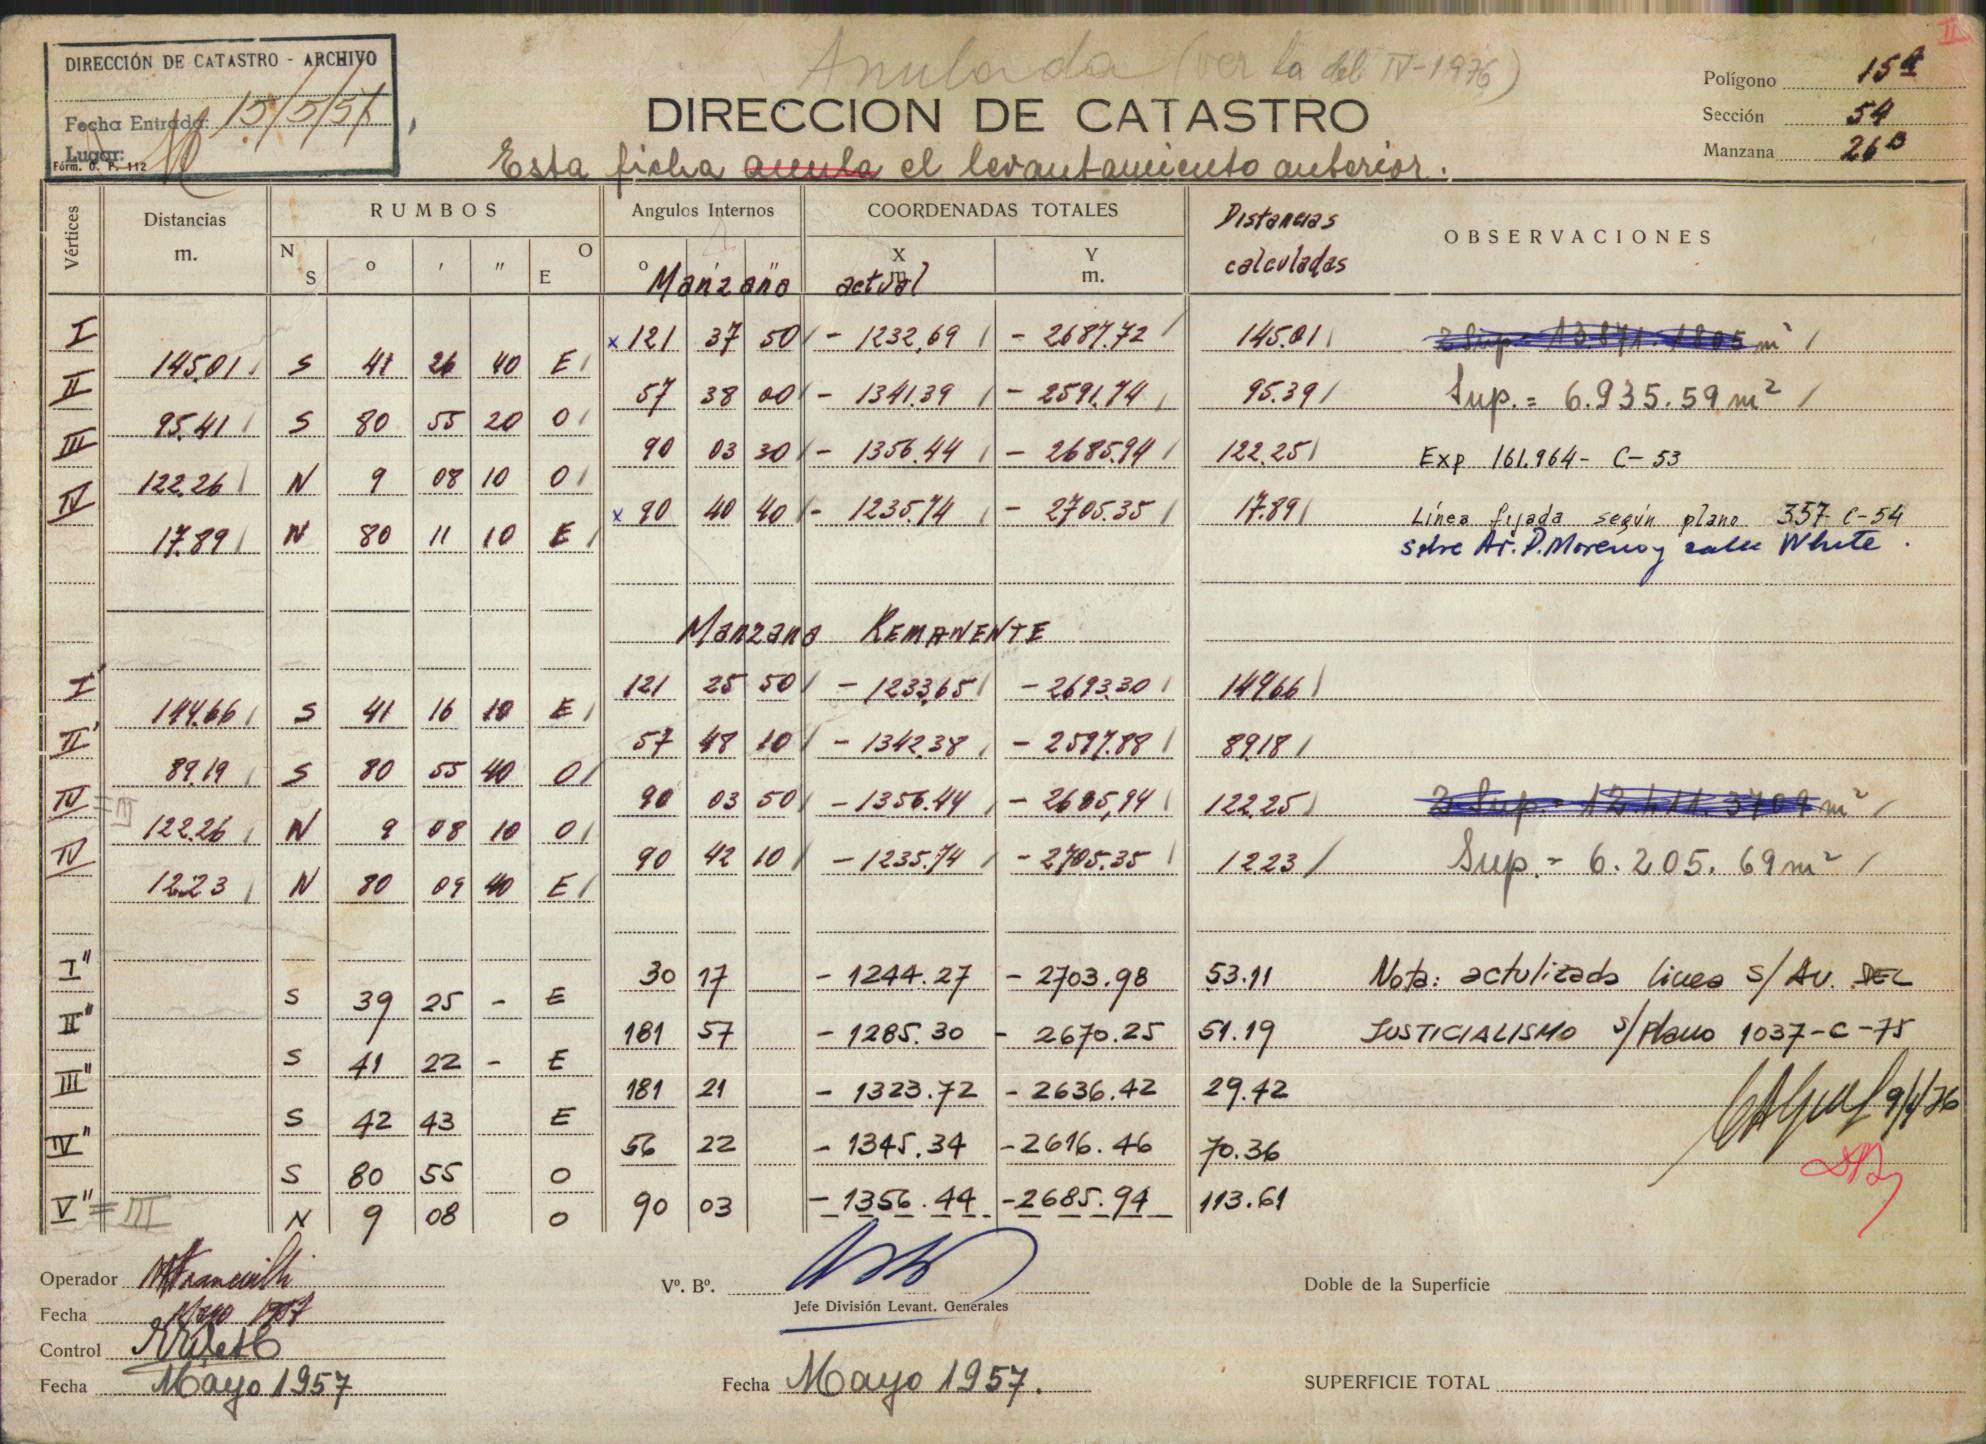 II
Anulada (ver la del IV-1976)
DIRECCIÓN DE CATASTRO - ARCHIVO
Fecha Entrada: 15/5/57
Lugar:
Fórm. O. P. 112
DIRECCION DE CATASTRO
Esta ficha anula el levantamiento anterior.
Polígono 15A
Sección 54
Manzana 26B
Vértices Distancias m. RUMBOS N S ° ' " O E Angulos Internos ° ' " COORDENADAS TOTALES X m. Y m. Distancias calculadas OBSERVACIONES
Manzana actual
I x 121 37 50 - 1232,69 - 2687.72 145.01 2 Sup = 13.871.1805 m²
145.01 S 41 26 40 E
II 57 38 00 - 1341.39 - 2591.74 95.39 Sup. = 6.935.59 m²
95.41 S 80 55 20 O
III 90 03 30 - 1356.44 - 2685.94 122.25 Exp 161.964- C-53
122.26 N 9 08 10 O
IV x 90 40 40 - 1235.74 - 2705.35 17.89 Línea fijada según plano 357-C-54
17.89 N 80 11 10 E sobre Av. P. Moreno y calle White.
Manzana REMANENTE
I' 121 25 50 - 1233,65 - 2693.30 144.66
144.66 S 41 16 10 E
II' 57 48 10 - 1342.38 - 2597.88 89.18
89.19 S 80 55 40 O
IV = III 90 03 50 - 1356.44 - 2685,94 122.25 2 Sup. = 12.411.3709 m²
122.26 N 9 08 10 O
IV 90 42 10 - 1235.74 - 2705.35 12.23 Sup. = 6.205.69 m²
12.23 N 80 09 40 E
I" 30 17 - 1244.27 - 2703.98 53.11 Nota: actulizada linea s/ Av. DEL
S 39 25 - E
II" 181 57 - 1285.30 - 2670.25 51.19 JUSTICIALISMO s/Plano 1037-C-75
S 41 22 - E
III" 181 21 - 1323.72 - 2636.42 29.42
S 42 43 E
9/4/76
IV" 56 22 - 1345.34 - 2616.46 70.36
S 80 55 O
V" = III 90 03 - 1356.44 - 2685.94 113.61
N 9 08 O
Operador
Fecha Mayo 1957
Control
Fecha Mayo 1957
Vº. Bº.
Jefe División Levant. Generales
Fecha Mayo 1957.
Doble de la Superficie
SUPERFICIE TOTAL